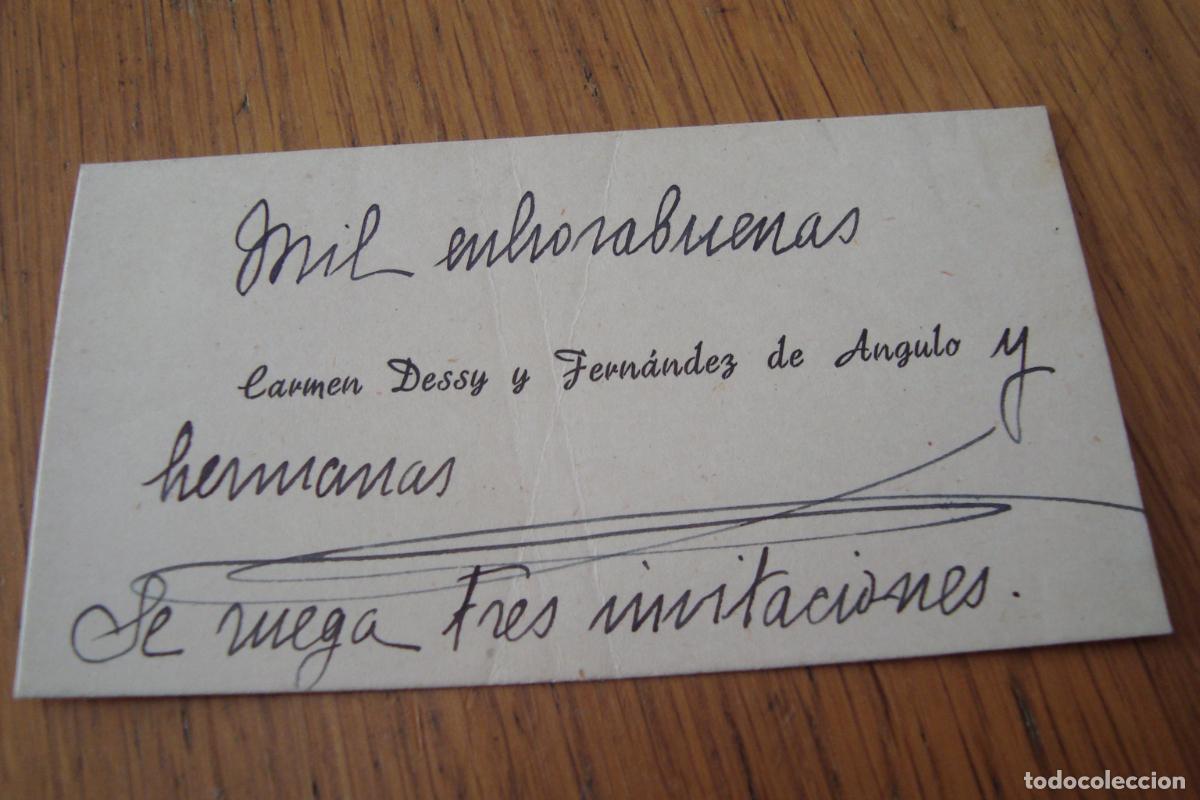 Mil enhorabuenas
Carmen Dessy y Fernández de Angulo y
hermanas
Se ruega tres invitaciones.
todocoleccion